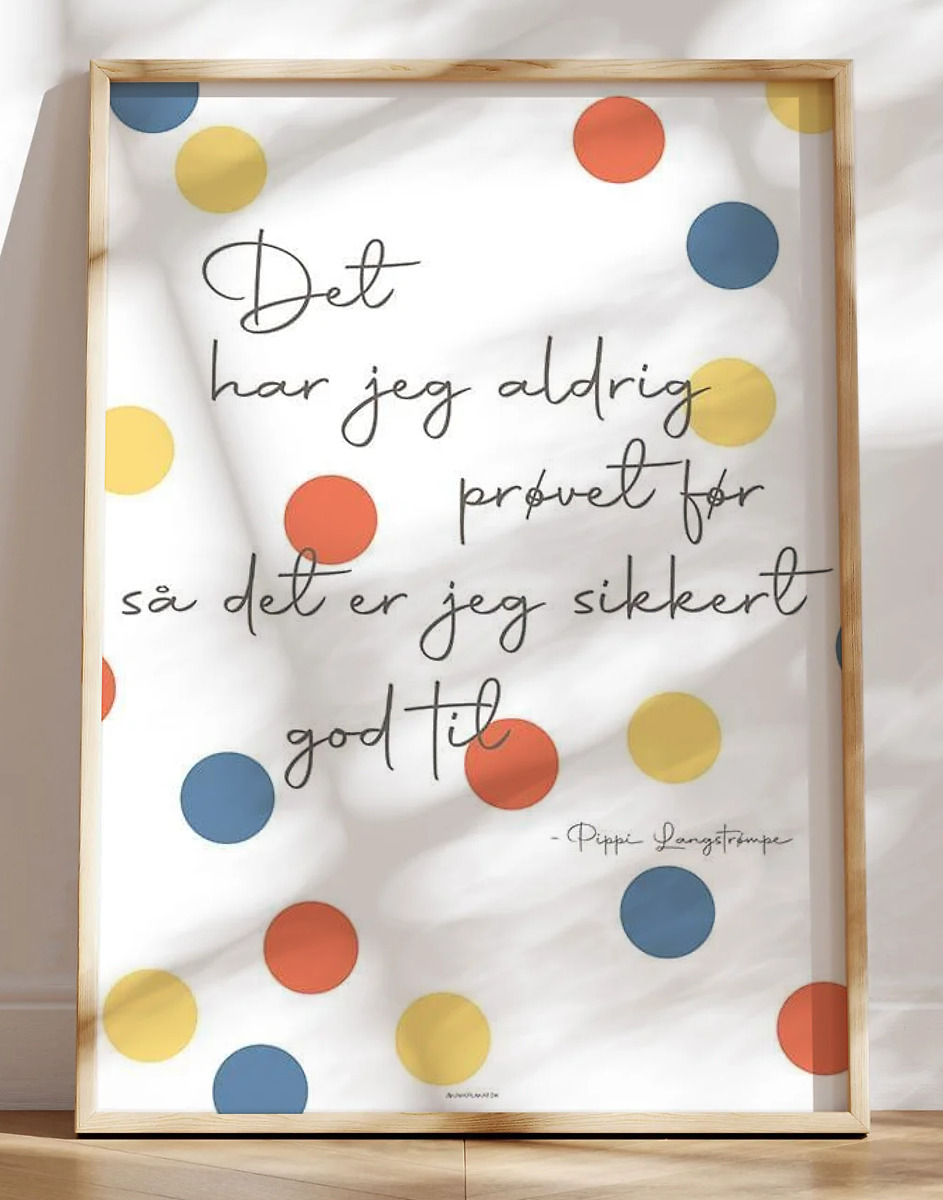 Det
har jeg aldrig
prøvet før
så det er jeg sikkert
god til
- Pippi Langstrømpe